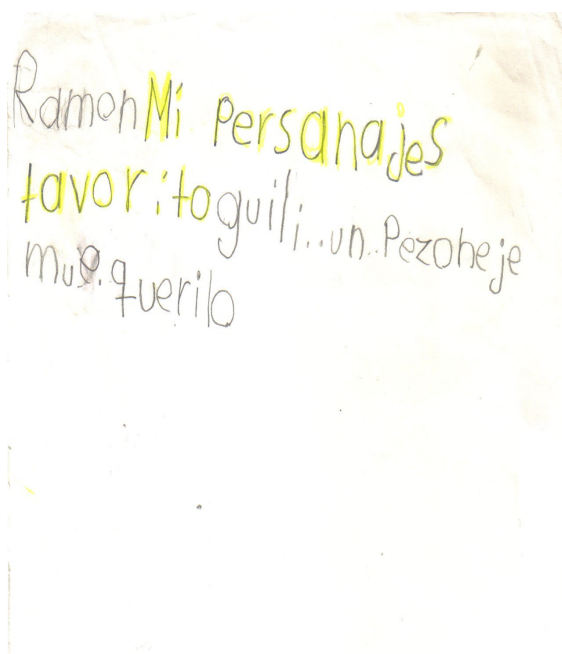 Ramon Mi Persanajes
favorito guili..un.Pezoneje
mue.querilo